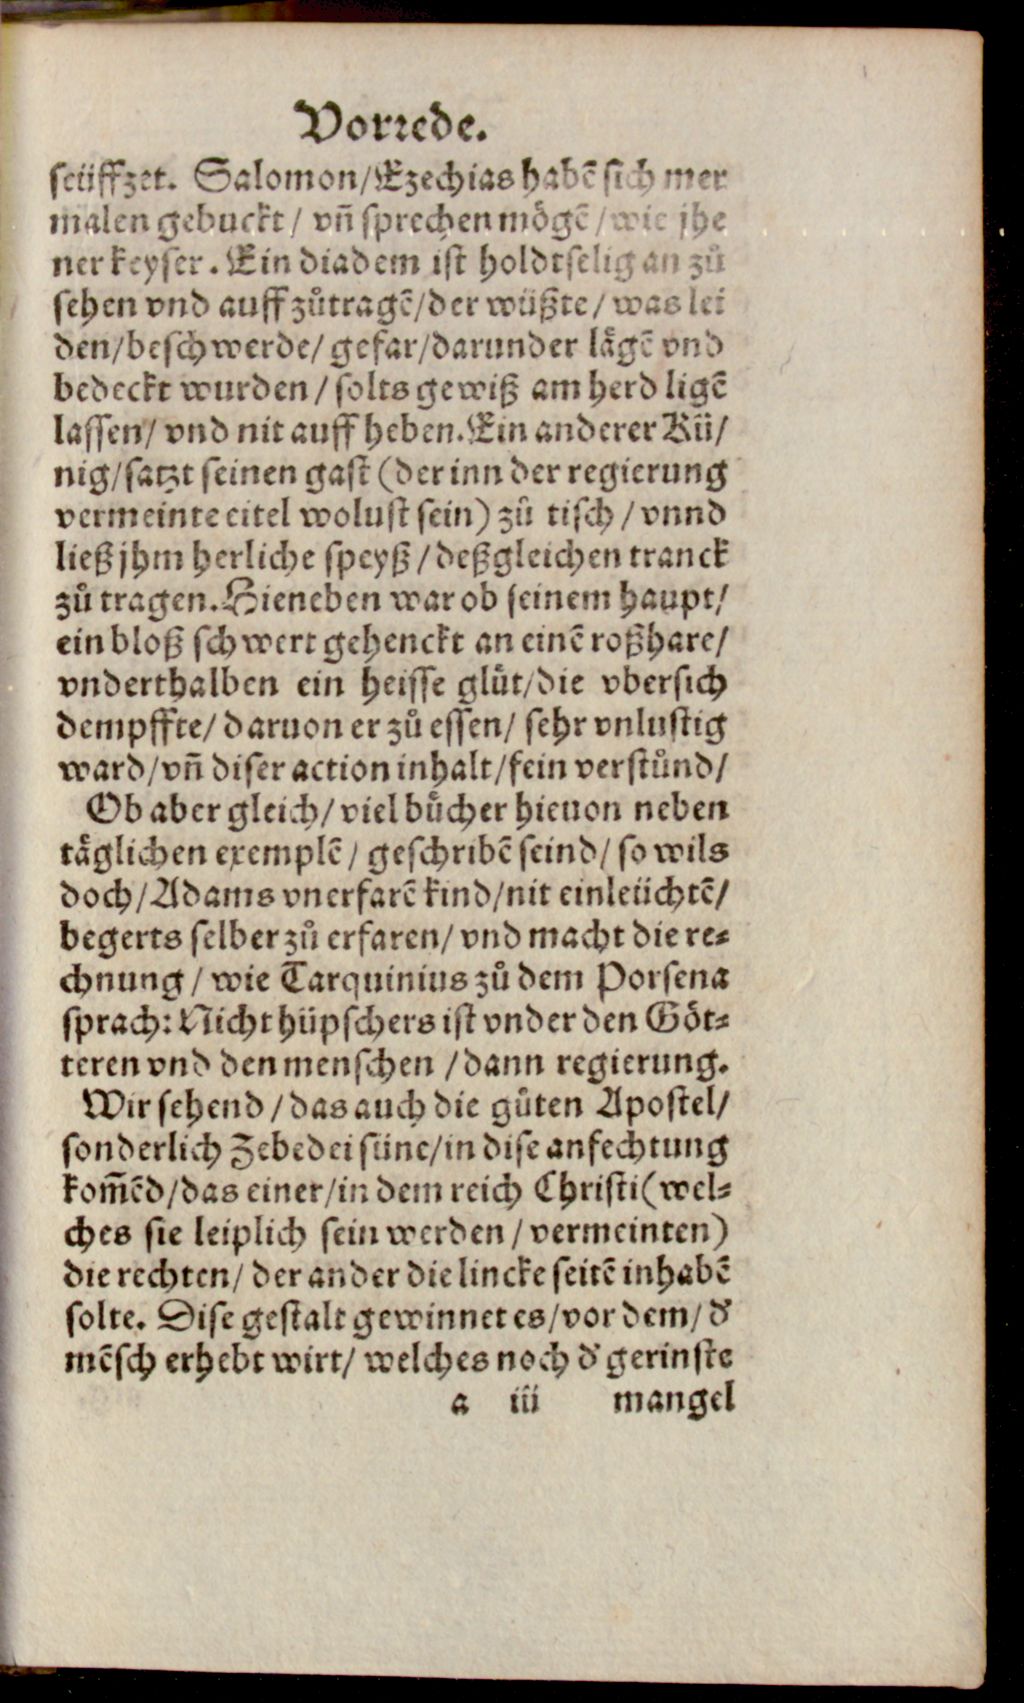 Vorrede.
seüffzet. Salomon/Ezechias habē sich mer
malen gebuckt/ vn̄ sprechen mögē/wie jhe
ner keyser. Ein diadem ist holdtselig an zů
sehen vnd auff zůtragē/der wüßte/ was lei
den/beschwerde/ gefar/darunder lågē vnd
bedeckt wurden/ solts gewiß am herd ligē
lassen/ vnd nit auff heben. Ein anderer Kü/
nig/satzt seinen gast (der inn der regierung
vermeinte eitel wolust sein) zů tisch/ vnnd
ließ jhm herliche speyß/ deßgleichen tranck
zů tragen. Hieneben war ob seinem haupt/
ein bloß schwert gehenckt an einē roßhare/
vnderthalben ein heisse glůt/die vbersich
dempffte/ daruon er zů essen/ sehr vnlustig
ward/vn̄ diser action inhalt/fein verstůnd/
Ob aber gleich/ viel bůcher hieuon neben
täglichen exemplē/ geschribē seind/ so wils
doch/Adams vnerfarē kind/nit einleüchtē/
begerts selber zů erfaren/ vnd macht die re⸗
chnung/ wie Tarquinius zů dem Porsena
sprach: Nicht hüpschers ist vnder den Göt⸗
teren vnd den menschen/dann regierung.
Wir sehend/das auch die gůten Apostel/
sonderlich Zebedei süne/in dise anfechtung
kom̄ēd/das einer/in dem reich Christi(wel⸗
ches sie leiplich sein werden/ vermeinten)
die rechten/ der ander die lincke seitē inhabē
solte. Dise gestalt gewinnet es/vor dem/ d'
mēsch erhebt wirt/ welches noch d' gerinste
a iii mangel